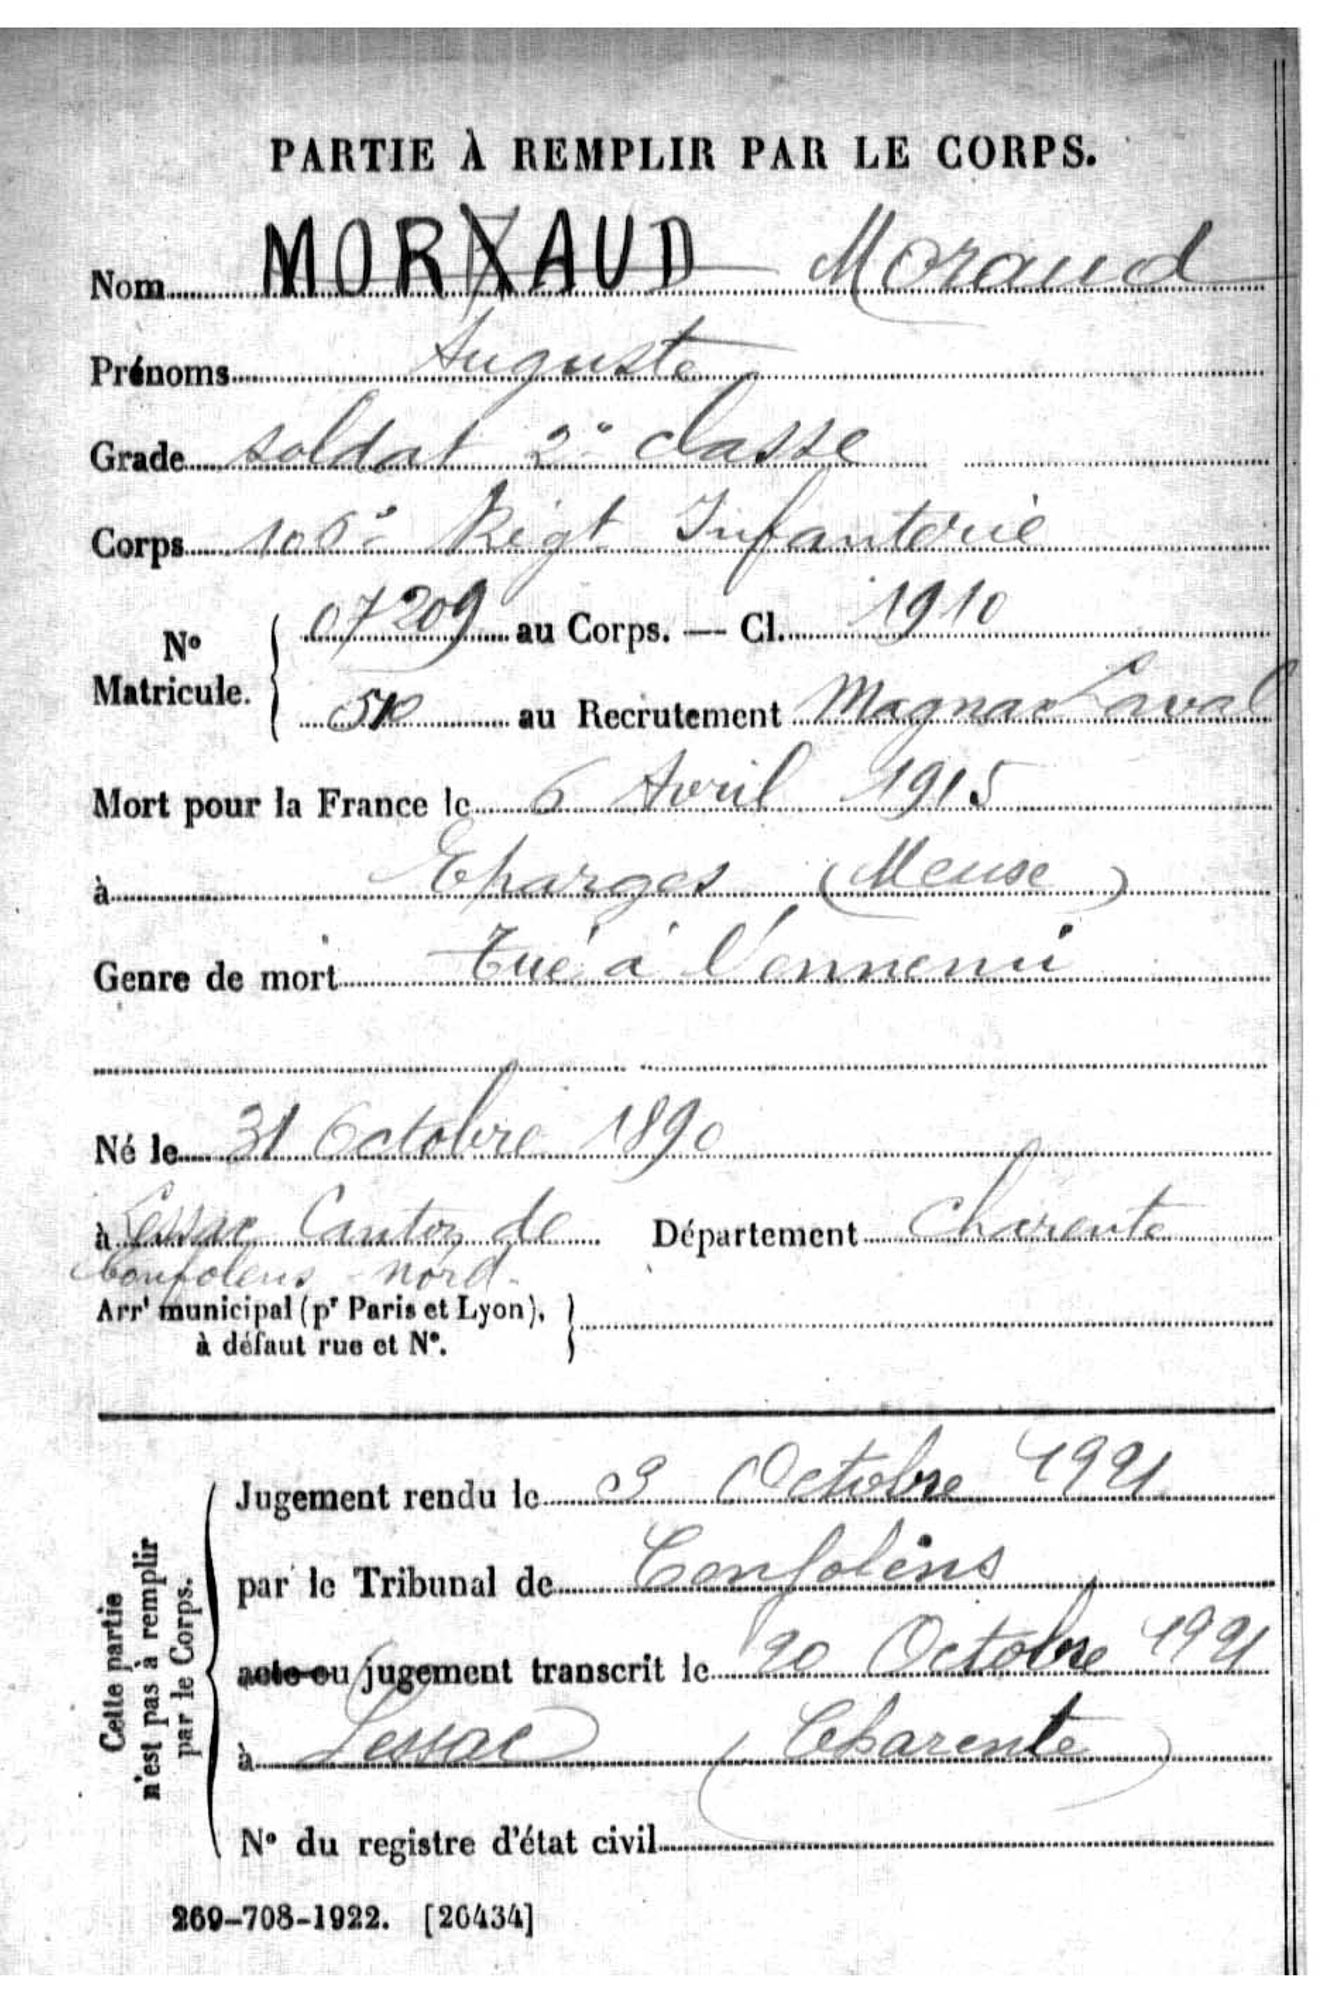 PARTIE À REMPLIR PAR LE CORPS.
Nom MORAUD Moraud
Prénoms Auguste
Grade soldat 2e classe
Corps 106e Régt Infanterie
N° Matricule. 07209 au Corps. — Cl. 1910
510 au Recrutement Magnac Laval
Mort pour la France le 6 Avril 1915
à Eparges (Meuse)
Genre de mort Tué à l'ennemi
Né le 31 Octobre 1890
à Lessac Canton de Département Charente
Confolens - nord -
Arrt municipal (pr Paris et Lyon),
à défaut rue et N°.
Cette partie
n'est pas à remplir
par le Corps.
Jugement rendu le 3 Octobre 1921
par le Tribunal de Confolens
acte ou jugement transcrit le 20 Octobre 1921
à Lessac (Charente)
N° du registre d'état civil
269-708-1922. [26434]